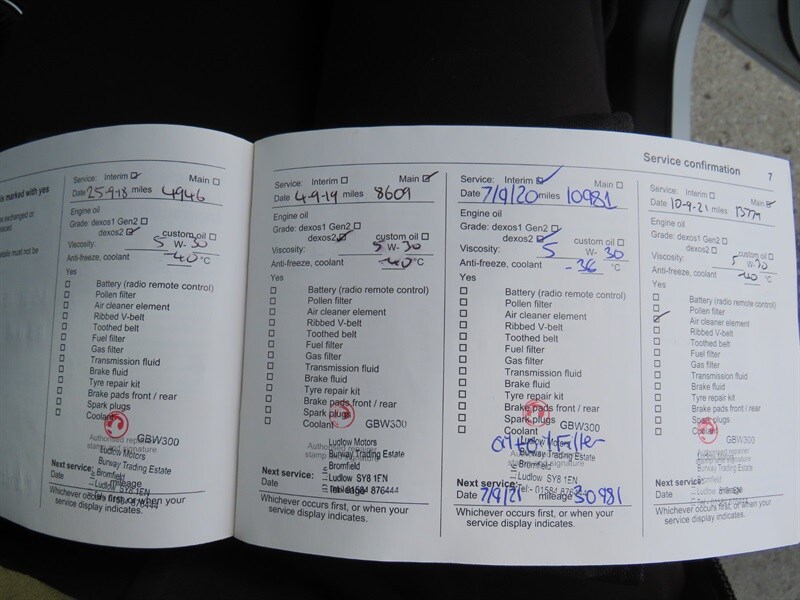 le marked with yes
Service: Interim
Date 25-9-18 miles 4946
Engine oil
Grade: dexos1 Gen2
dexos2
custom oil
Viscosity: 5 W- 30
-40 °C
Yes
GBW300
Authorised repairer
stamp and signature
Ludlow Motors
Bunway Trading Estate
Bromfield
Ludlow SY8 1EN
Tel:- 01584 876444
Next service:
Date mileage
Whichever occurs first, or when your
service display indicates.
Service: Interim Main
Date 4-9-19 miles 8609
Engine oil
Grade: dexos1 Gen2
dexos2 custom oil
Viscosity: 5 W- 30
Anti-freeze, coolant -40 °C
Yes
Battery (radio remote control)
Pollen filter
Air cleaner element
Ribbed V-belt
Toothed belt
Fuel filter
Gas filter
Transmission fluid
Brake fluid
Tyre repair kit
Brake pads front / rear
Spark plugs
Coolant
GBW300
Authorised repairer
stamp and signature
Ludlow Motors
Bunway Trading Estate
Bromfield
Ludlow SY8 1EN
Tel:- 01584 876444
Next service:
Date mileage
Whichever occurs first, or when your
service display indicates.
Service confirmation 7
Service: Interim Main
Date 7/9/20 miles 10981
Engine oil
Grade: dexos1 Gen2
dexos2 custom oil
Viscosity: 5 W- 30
Anti-freeze, coolant -36 °C
Yes
Battery (radio remote control)
Pollen filter
Air cleaner element
Ribbed V-belt
Toothed belt
Fuel filter
Gas filter
Transmission fluid
Brake fluid
Tyre repair kit
Brake pads front / rear
Spark plugs
Coolant
GBW300
Filter
Ludlow Motors
Bunway Trading Estate
Bromfield
Ludlow SY8 1EN
Tel:- 01584 876444
Next service:
Date 7/9/21 mileage 30981
Whichever occurs first, or when your
service display indicates.
Service: Interim Main
Date 10-9-21 miles
Engine oil
Grade: dexos1 Gen2
dexos2 custom oil
Viscosity: 5 W- 30
Anti-freeze, coolant -40 °C
Yes
Battery (radio remote control)
Pollen filter
Air cleaner element
Ribbed V-belt
Toothed belt
Fuel filter
Gas filter
Transmission fluid
Brake fluid
Tyre repair kit
Brake pads front / rear
Spark plugs
Coolant
GBW300
Authorised repairer
stamp and signature
Ludlow Motors
Bunway Trading Estate
Bromfield
Ludlow SY8 1EN
Tel:- 01584 876444
Next service:
Date mileage
Whichever occurs first, or when your
service display indicates.